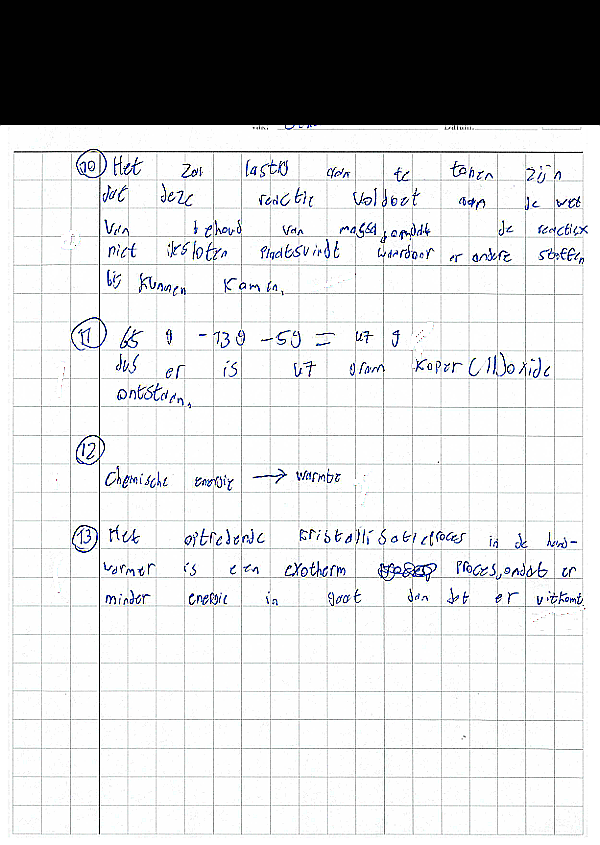 10 Het zal lastig aan te tonen zijn
dat deze reactie voldoet aan de wet
van behoud van massa, omdat de reactie
niet gesloten plaatsvindt waardoor er andere stoffen
bij kunnen komen.
11 65 g - 13 g - 5 g = 47 g
dus er is 47 gram koper(II)oxide
ontstaan.
12
Chemische energie → warmte
13 Het optredende kristallisatieproces in de hand-
warmer is een exotherm proces, omdat er
minder energie in gaat dan dat er uitkomt.